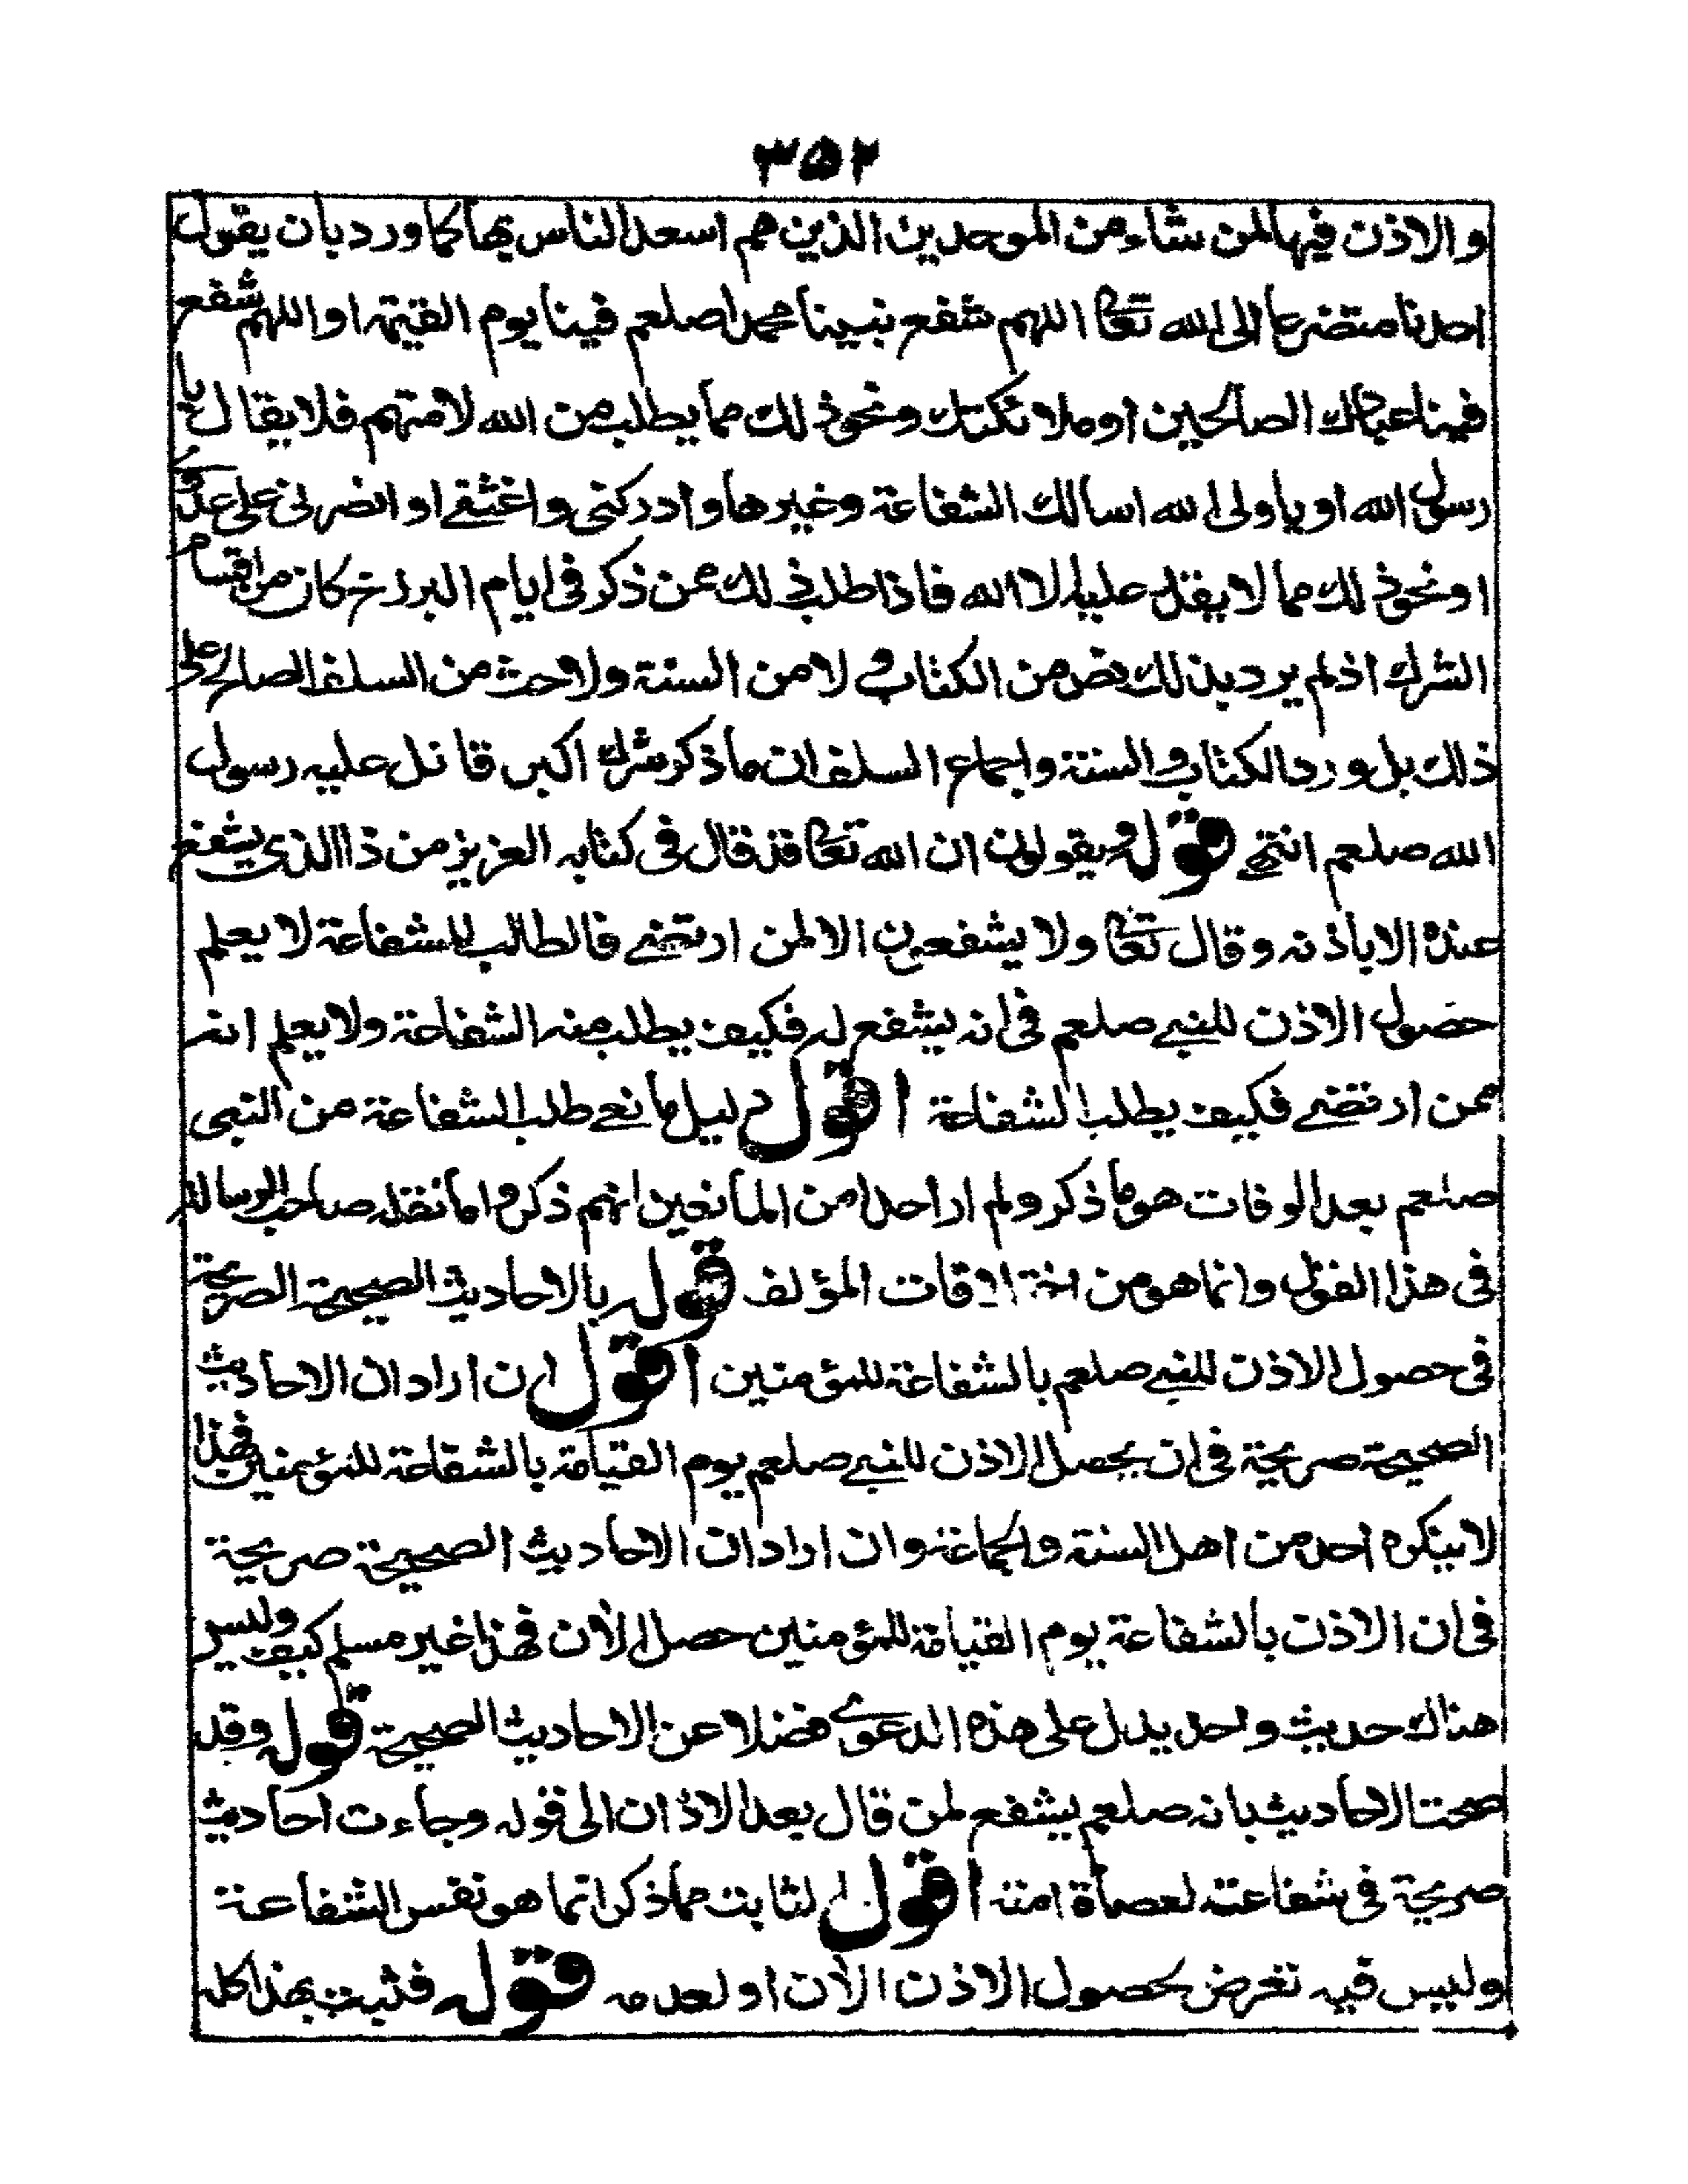 ٣٥٢
والاذن فيها لمن شاء من الموحدين الذين هم اسعد الناس بها كما ورد بان يقول
احدنا متضرعا الى الله تعالى اللهم شفع نبينا محمدا صلعم فينا يوم القيمة او اللهم شفع
فينا عبادك الصالحين او ملائكتك ونحو ذلك مما يطلب من الله لا منهم فلا يقال يا
رسول الله او يا ولى الله اسالك الشفاعة وغيرها وادركنى واغثنے او انصرنى على عدوى
او نحو ذلك مما لا يقدر عليه الا الله فاذا طلب ذلك ممن ذكر فى ايام البرزخ كان من اقسام
الشرك اذ لم يرد بذلك نص من الكتاب و لا من السنة ولا حث من السلف الصالح على
ذلك بل ورد الكتاب والسنة واجماع السلف ان ما ذكر شرك اكبر قاتل عليه رسول
الله صلعم انتهے قوله ويقولون ان الله تعالى قد قال فى كتابه العزيز من ذا الذى يشفع
عنده الا باذنه وقال تعالى ولا يشفعون الا لمن ارتضے فالطالب للشفاعة لا يعلم
حصول الاذن للنبے صلعم فى انه يشفع له فكيف يطلب منه الشفاعة ولا يعلم انه
ممن ارتضے فكيف يطلب الشفاعة اقول دليل مانعے طلب الشفاعة من النبى
صلعم بعد الوفات هو ما ذكر ولم ار احدا من المانعين انهم ذكروا ما نقله صاحب الرسالة
فى هذا القول وانما هو من اختلاقات المؤلف قوله بالاحاديث الصحيحة الصريحة
فى حصول الاذن للنبے صلعم بالشفاعة للمؤمنين اقول ان اراد ان الاحاديث
الصحيحة صريحة فى ان يحصل الاذن للنبے صلعم يوم القيامة بالشفاعة للمؤمنين فهذا
لا ينكره احد من اهل السنة والجماعة وان اراد ان الاحاديث الصحيحة صريحة
فى ان الاذن بالشفاعة يوم القيامة للمؤمنين حصل الآن فهذا غير مسلم كيف وليس
هناك حديث واحد يدل على هذه الدعوے فضلا عن الاحاديث الصحيحة قوله وقد
صحت الاحاديث بانه صلعم يشفع لمن قال بعد الاذان الى قوله وجاءت احاديث
صريحة فى شفاعته لعصاة امته اقول الثابت مما ذكر انما هو نفس الشفاعة
وليس فيه تعرض لحصول الاذن الآن او لعدمه قوله فثبت بهذا كله